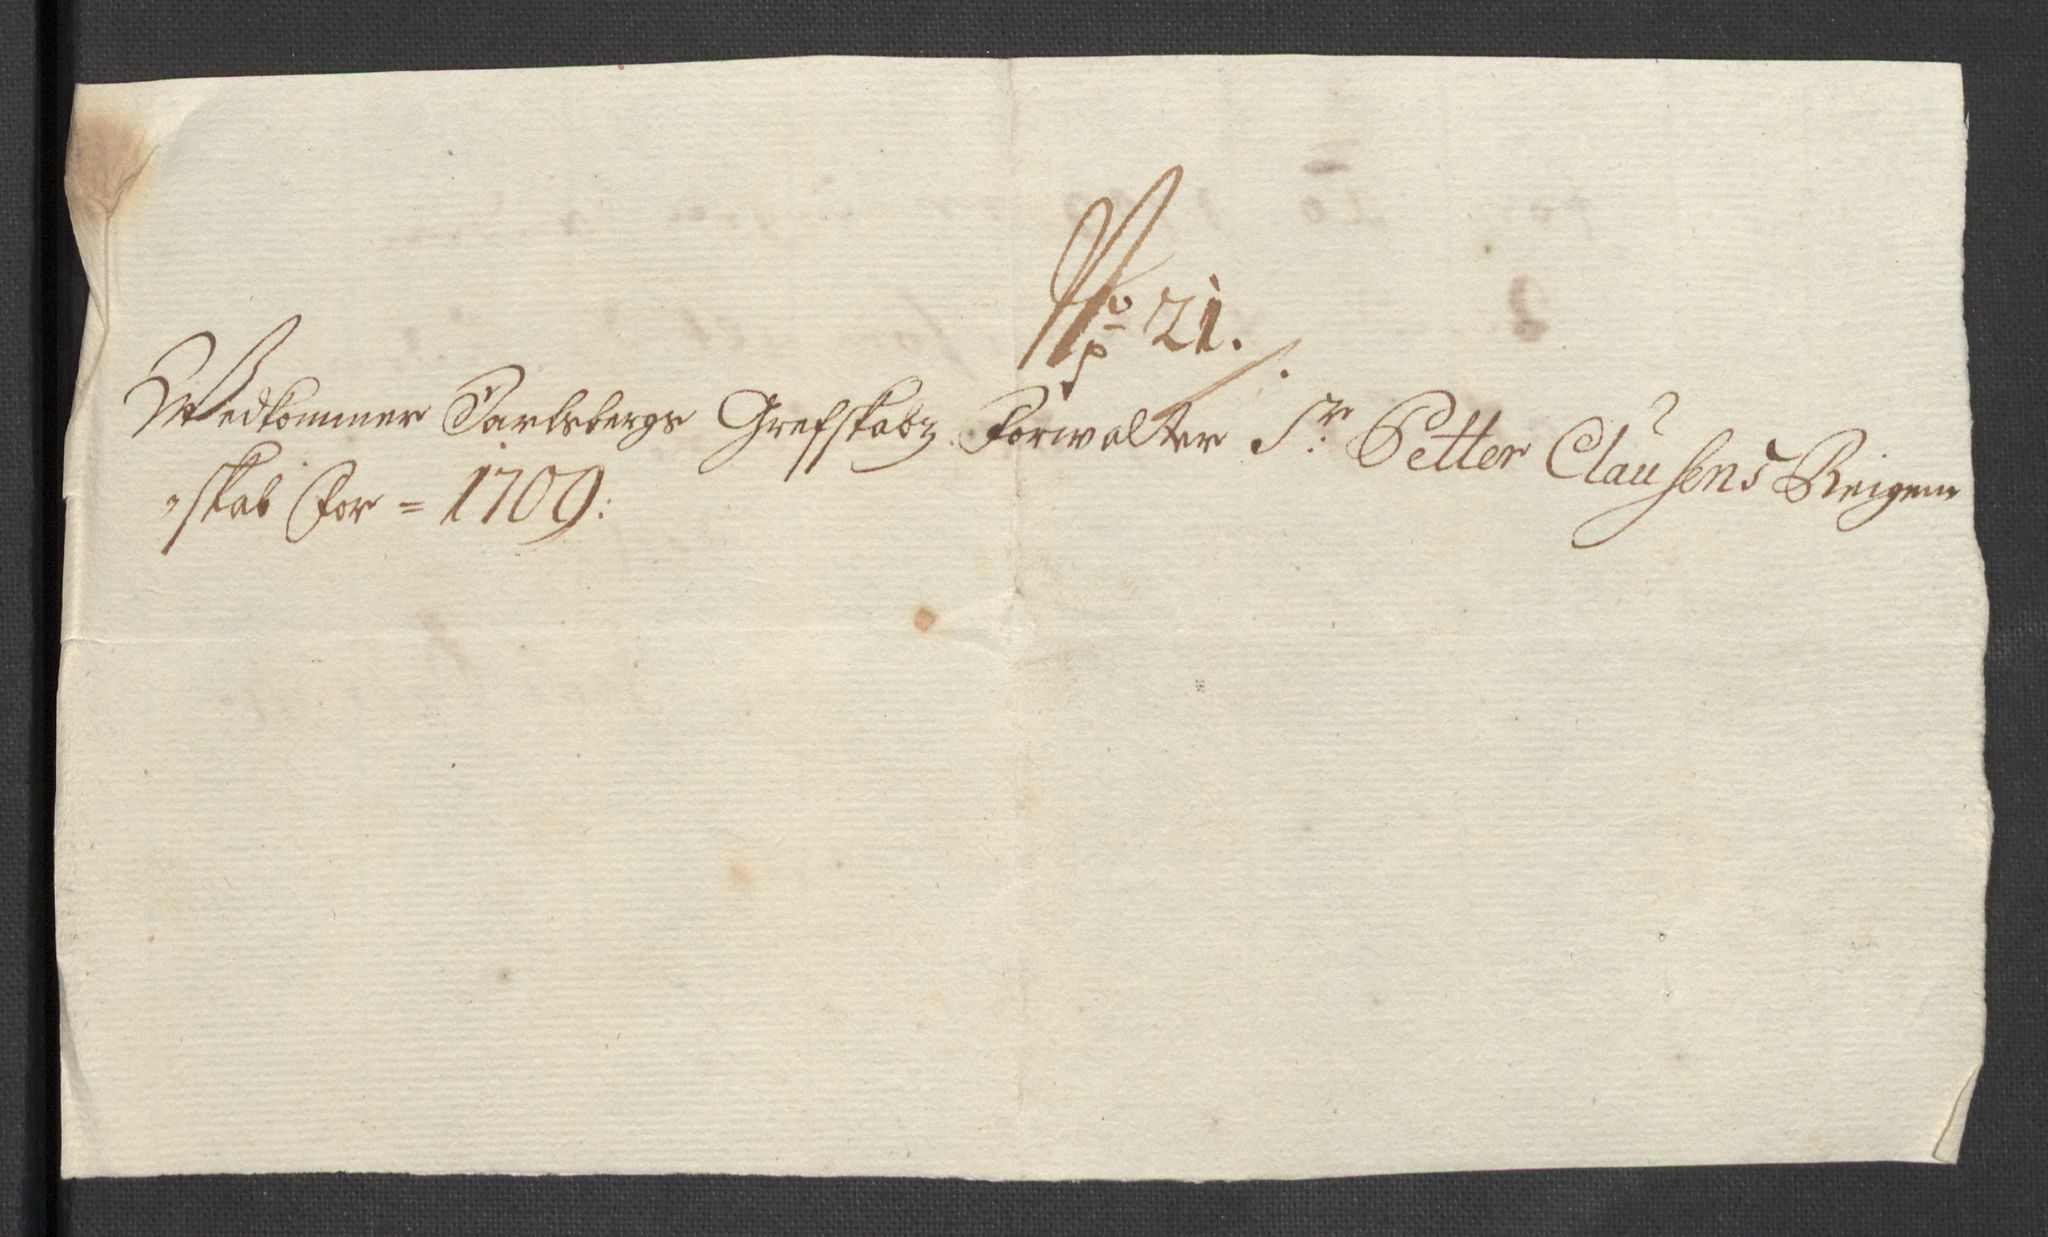 No 21.
Vedkommer Jarlsbergs Grefskabz Forwalter Sr. Petter Claüsens Reigen
skab for = 1709: